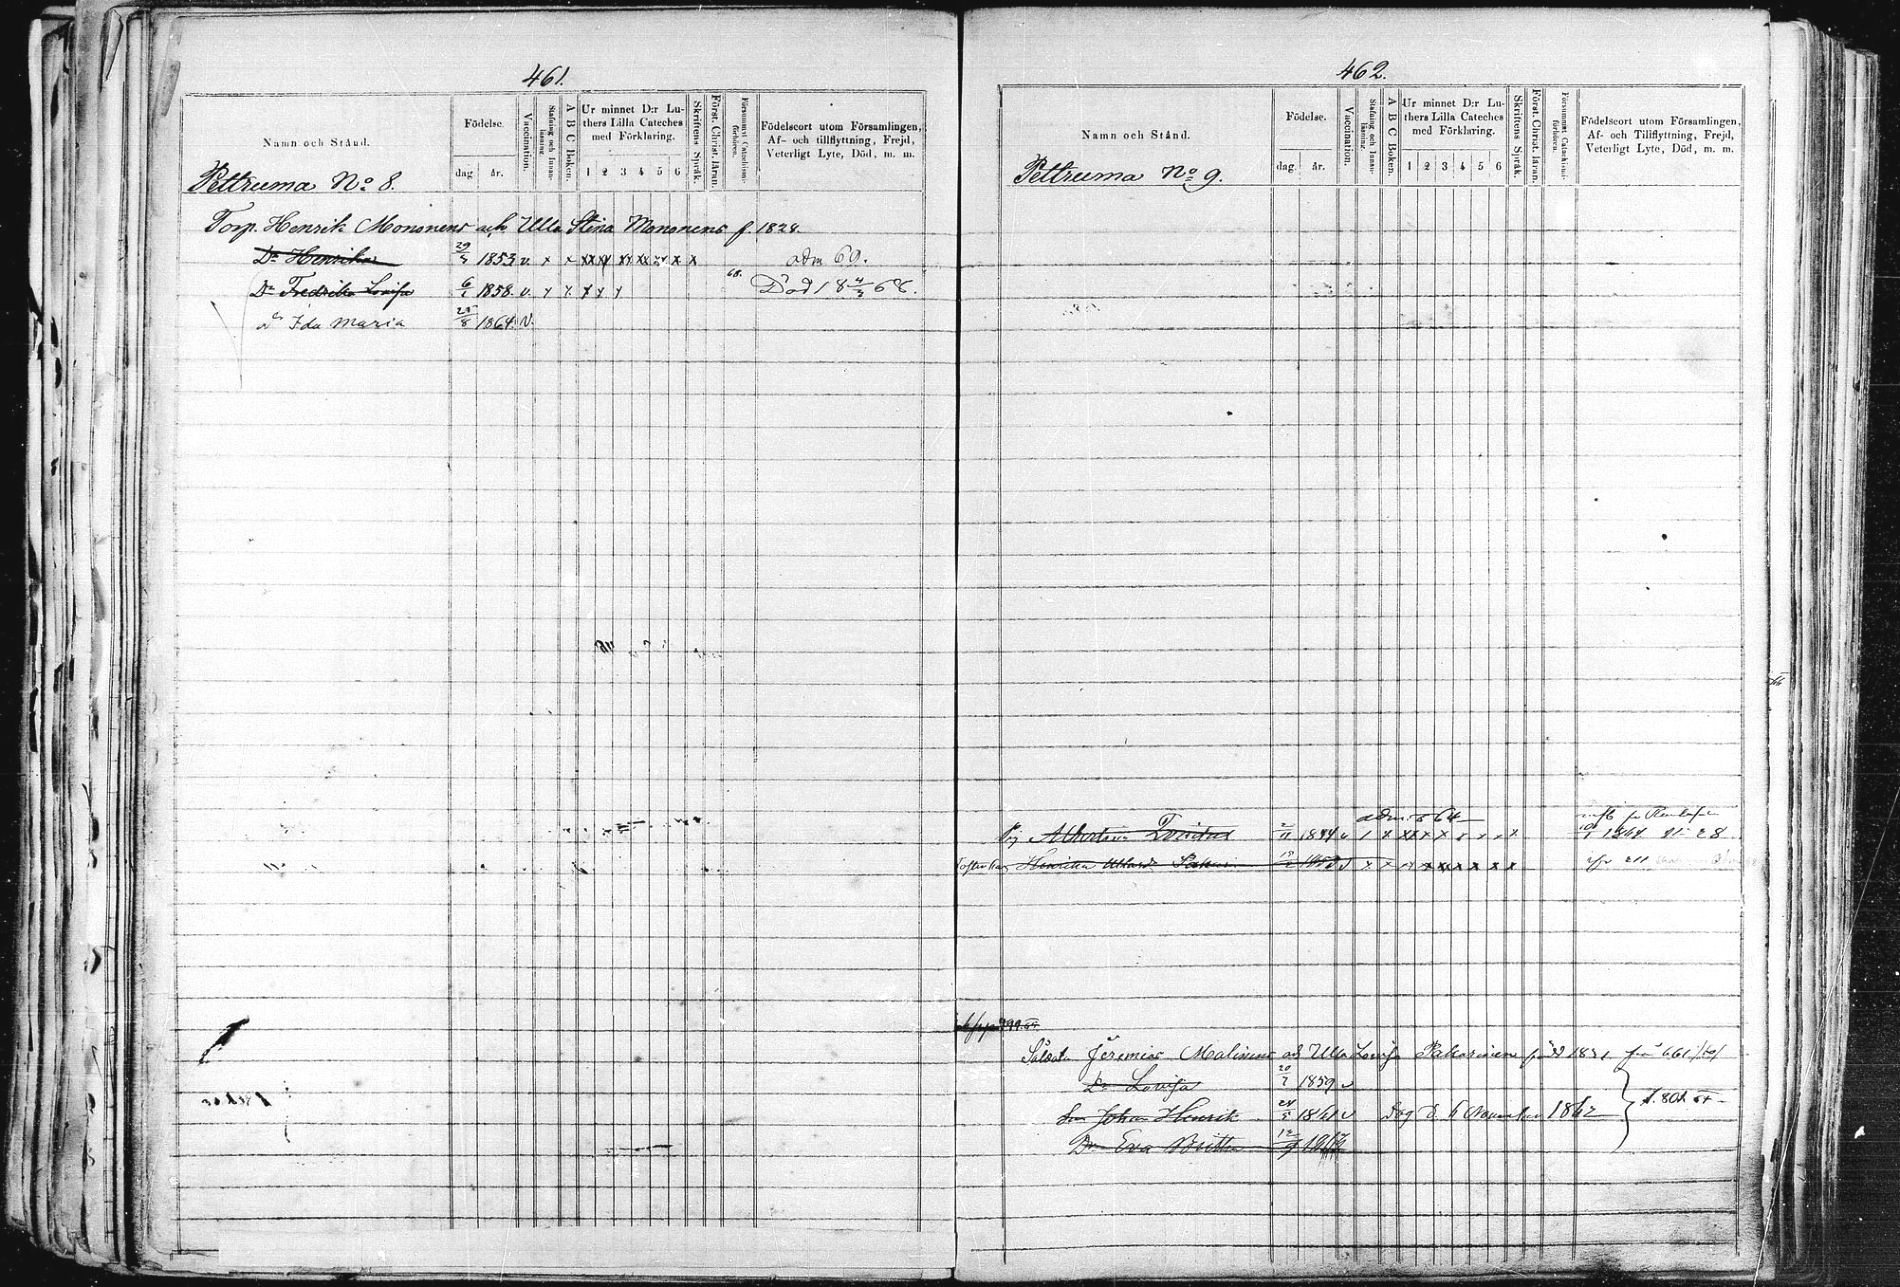 461.
Namn och Stånd.
Födelse.
dag
år.
Vaccination.
Stafning och Innanläsning.
A B C Boken.
Ur minnet D:r Luthers Lilla Cateches med Förklaring.
1 2 3 4 5 6
Skriftens Språk.
Först. Christ. läran.
Försummat Catechismiförhören.
Födelseort utom Församlingen,
Af- och tillflyttning, Frejd,
Veterligt Lyte, Död, m. m.
Pettruma No 8.
Torp. Henrik Mononens och Ulla Stina Mononens f. 1828.
Dr Henrika 29/3 1853 v. x x xx xx xx xx x x adm 69.
Dr Fredrika Lovisa 6/1 1858. v. x x x x x 68. Död 18 4/3 68.
dr Ida Maria 25/8 1864 v.
462.
Namn och Stånd.
Födelse.
dag
år.
Vaccination.
Stafning och Innanläsning.
A B C Boken.
Ur minnet D:r Luthers Lilla Cateches med Förklaring.
1 2 3 4 5 6
Skriftens Språk.
Först. Christ. läran.
Försummat Catechismiförhören.
Födelseort utom Församlingen,
Af- och Tillflyttning, Frejd,
Veterligt Lyte, Död, m. m.
Pettruma No 9.
adm. 64
Pig Albertina 2/11 1844 v x x x x x x x x 1864
Henrika v x x x x x x x x x
999.
Soldat Jeremias Malinens och Ulla Lovisa Pakarinen 1831 från 661
Dr Lovisa 20/2 1859 v
Son Johan Henrik 24/5 1861 v Dog d. 6 November 1862
Dr Eva Britta 12/9
801